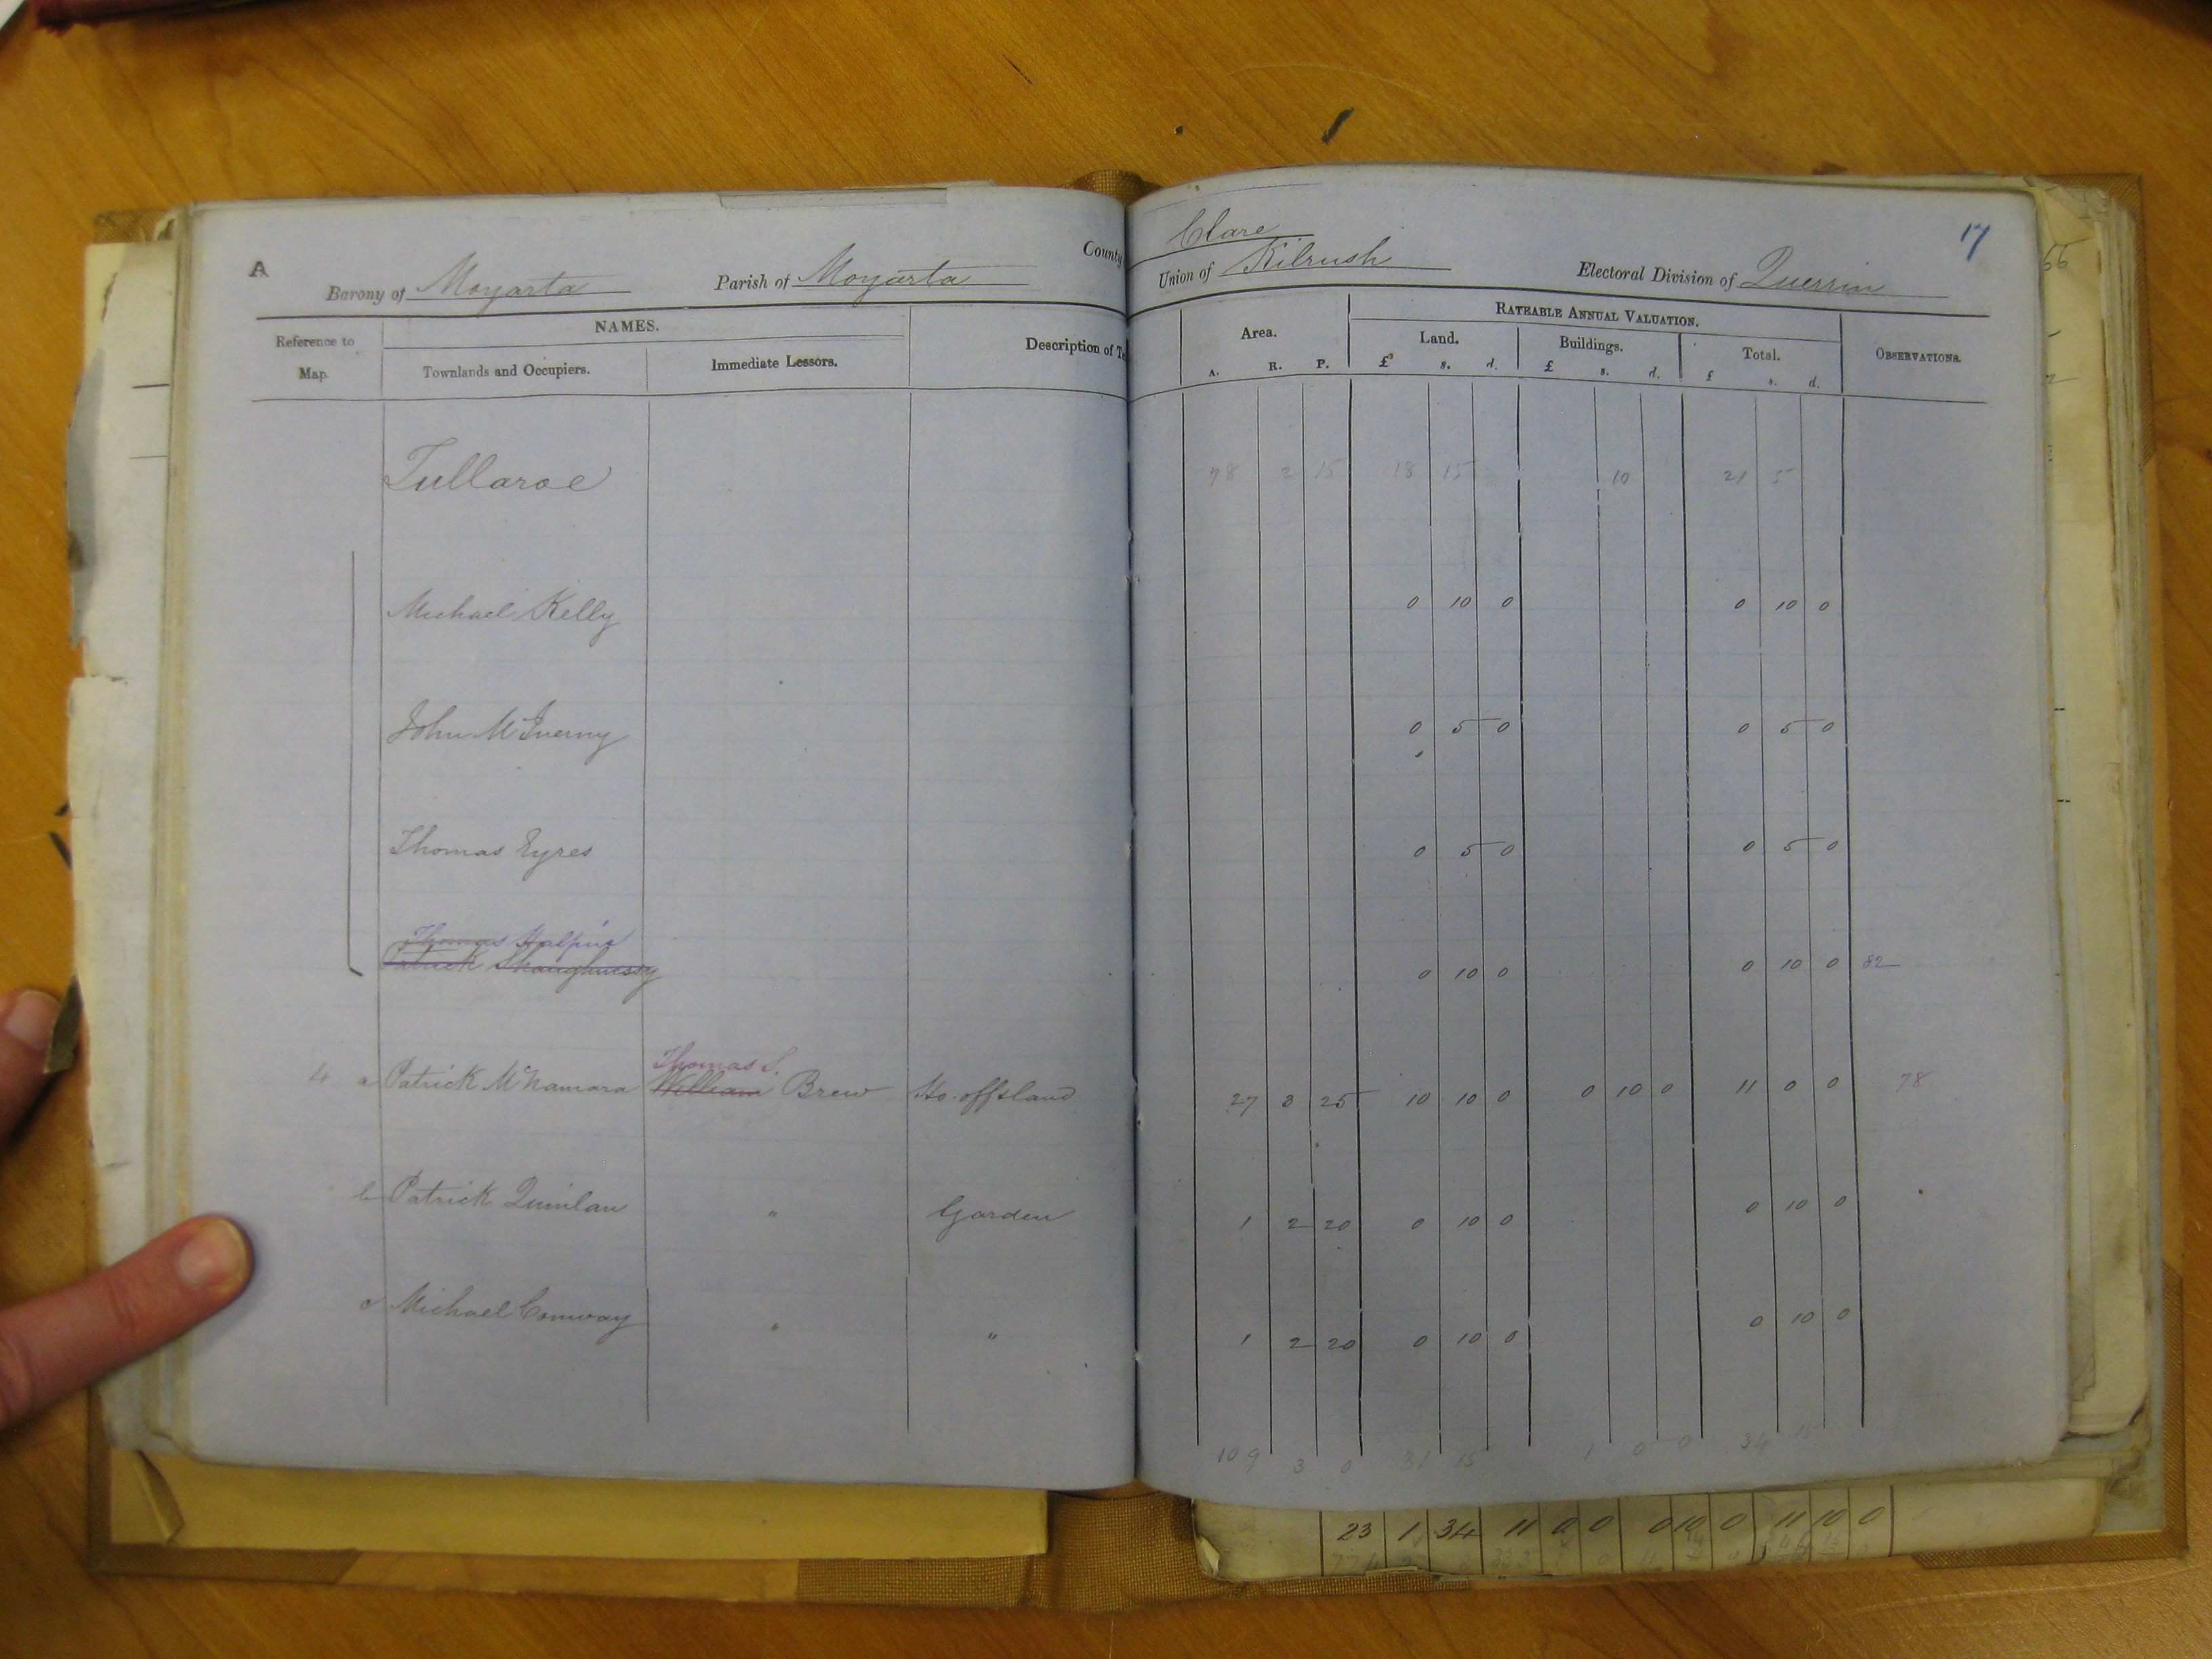 Clare
17
A
County
Barony of Moyarta Parish of Moyarta Union of Kilrush Electoral Division of Querrin
Reference to Map. NAMES. Description of Te Area. RATEABLE ANNUAL VALUATION. OBSERVATIONS.
Townlands and Occupiers. Immediate Lessors. Land. Buildings. Total.
A. R. P. £ s. d. £ s. d. £ s. d.
Tullaroe 78 2 15 18 15 10 21 5
Michael Kelly 0 10 0 0 10 0
John McInerny 0 5 0 0 5 0
Thomas Eyres 0 5 0 0 5 0
Thomas Halpin
Patrick Shaughnessy 0 10 0 0 10 0 82
Thomas S.
4 a Patrick McNamara William Brew Ho. offs land 27 3 25 10 10 0 0 10 0 11 0 0 78
b Patrick Quinlan " Garden 1 2 20 0 10 0 0 10 0
c Michael Conway " " 1 2 20 0 10 0 0 10 0
109 3 0 31 15 1 0 0 34 15
23 1 34 11 0 0 0 10 0 11 10 0